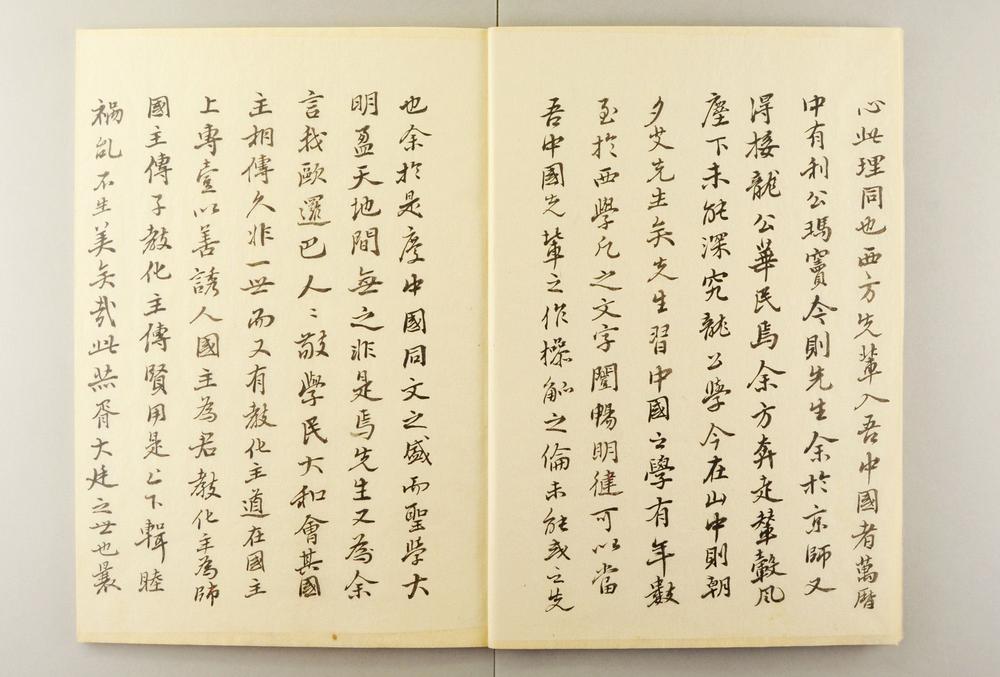 心此理同也西方先輩入吾中國者萬曆
中有利公瑪竇今則先生余於京師又
得接龍公華民焉余方奔走輦轂風
塵下未能深究龍公學今在山中則朝
夕艾先生矣先生習中國之學有年數
至於西學凡之文字闓暢明健可以當
吾中國先輩之作操觚之倫未能或之先
也余於是度中國同文之盛而聖學大
明盈天地間無之非是焉先生又為余
言我歐邏巴人〻敬學民大和會其國
主相傳久非一世而又有教化主道在國主
上專壹以善誘人國主為君教化主為師
國主傳子教化主傳賢用是上下輯睦
禍亂不生美矣哉此燕胥大廷之世也曩